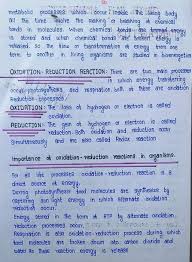 metabolic processes which occur inside the living body
all the time involve the making or breaking of chemical
bonds in molecules. When chemical bonds are formed energy is
stored and when chemical bonds are broken energy is
released. So the flow or transformation of energy from one
form to another in living organisms are studied in bioenergetics
OXIDATION-REDUCTION REACTION: There are two main processes
in which energy transfering
occur, photosynthesis and respiration both of these are oxidation
reduction processes.
OXIDATION: The loss of hydrogen or electron is called
oxidation.
REDUCTION: The gain of hydrogen or electron is called
reduction. Both oxidation and reduction occur
simultaneously and are also called Redox reaction
Importance of oxidation-reduction reactions in organisms.
For all life processes oxidation-reduction reaction is a
direct source of energy.
During photosynthesis food molecules are synthesized by
capturing sun light energy in which alternate oxidation-
reduction occur.
Energy stored in the form of ATP by alternate oxidation-
reduction processes occur.
Respiration is also oxidation-reduction process during which
food molecules are broken down into carbon dioxide and
water in these reaction energy is release